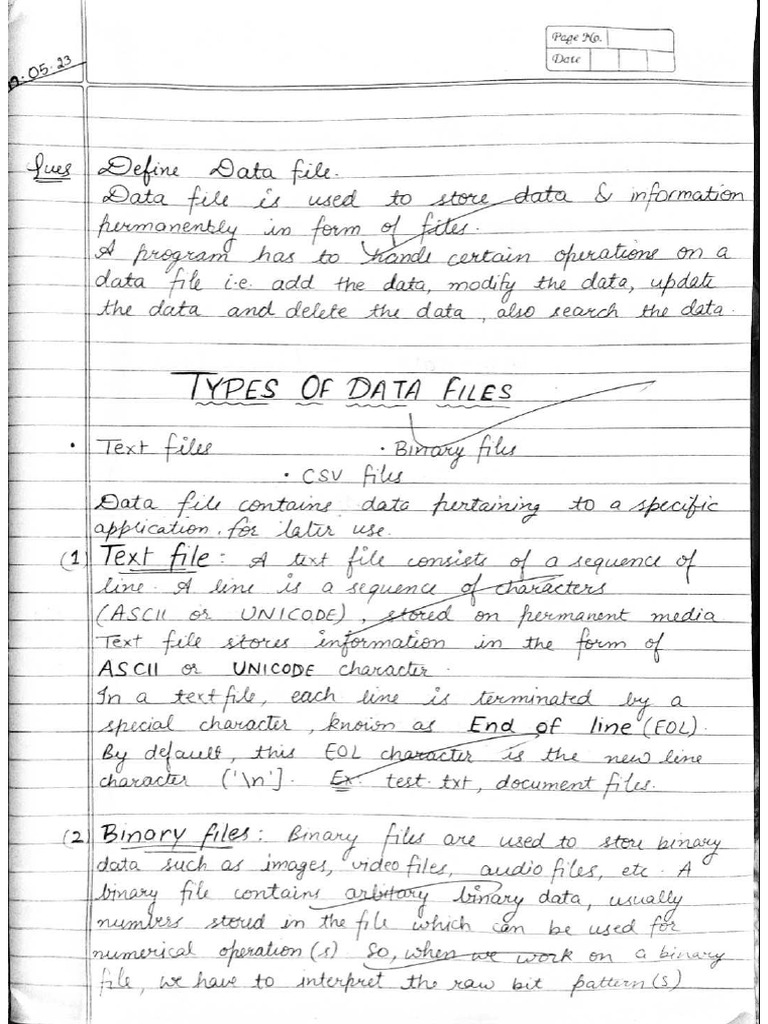 Page No.
Date
05.23
Ques Define Data file.
Data file is used to store data & information
permanently in form of files.
A program has to hands certain operations on a
data file i.e. add the data, modify the data, update
the data and delete the data, also search the data.
TYPES OF DATA FILES
• Text files • Binary files
• CSV files
Data file contains data pertaining to a specific
application for later use.
(1) Text file: A text file consists of a sequence of
line. A line is a sequence of characters
(ASCII or UNICODE), stored on permanent media
Text file stores information in the form of
ASCII or UNICODE character.
In a text file, each line is terminated by a
special character, known as End of line (EOL).
By default, this EOL character is the new line
character ('\n']. Ex. test.txt, document files.
(2) Binary files: Binary files are used to store binary
data such as images, video files, audio files, etc. A
binary file contains arbitary binary data, usually
numbers stored in the file which can be used for
numerical operation(s) So, when we work on a binary
file, we have to interpret the raw bit pattern(s)